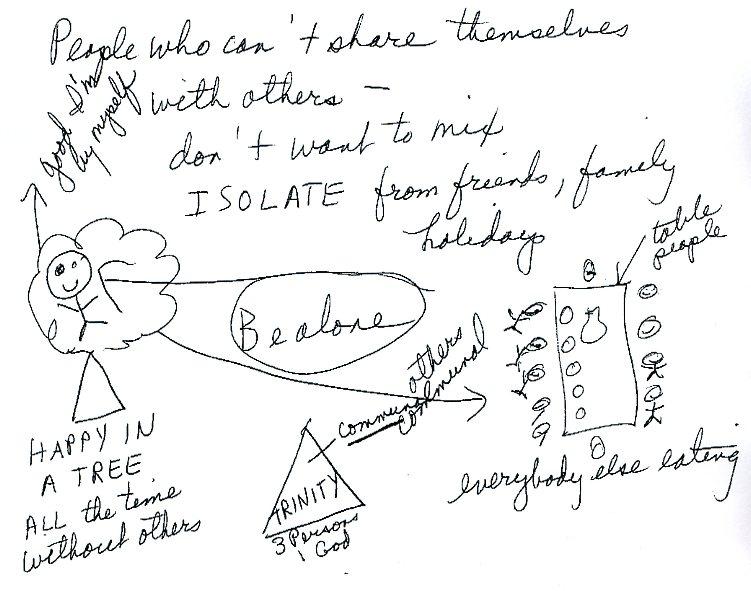 People who can't share themselves
with others –
don't want to mix
ISOLATE from friends, family
holidays
good I'm
by myself
table
people
Be alone
others
communal
communal
TRINITY
3 Persons
1 God
HAPPY IN
A TREE
ALL the time
without others
everybody else eating